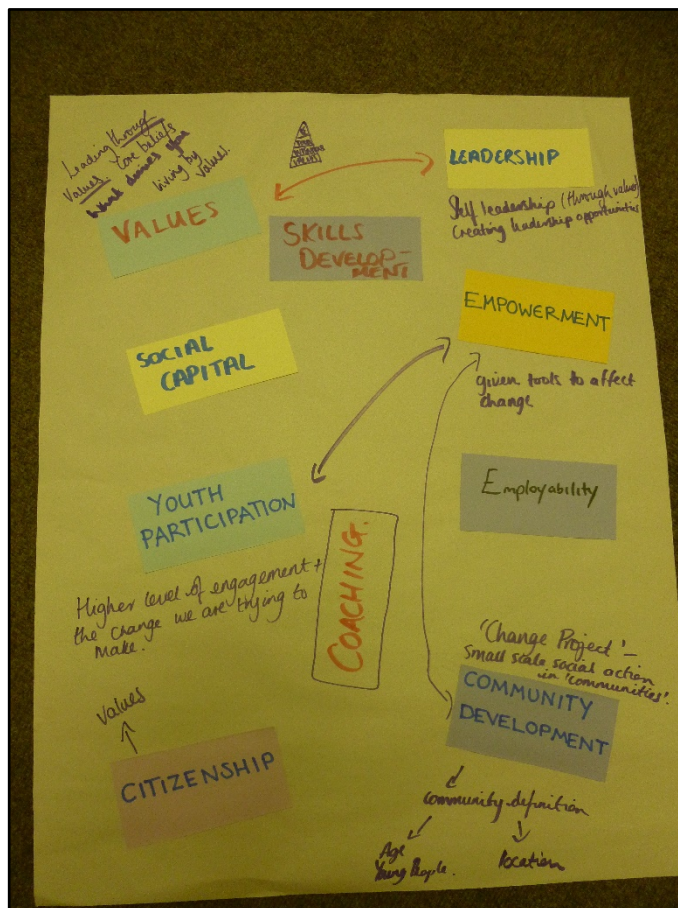 Leading through
Values. Core beliefs
what drives you
living by
values.
VALUES
VALUES
SKILLS
DEVELOP-
MENT
LEADERSHIP
Self leadership (through values)
Creating leadership opportunities
SOCIAL
CAPITAL
EMPOWERMENT
given tools to affect
change
YOUTH
PARTICIPATION
Higher level of engagement +
the change we are trying to
make.
COACHING.
Employability
'Change Project' –
small scale social action
in 'communities'.
COMMUNITY
DEVELOPMENT
community definition
Age
Young People.
location
values
CITIZENSHIP